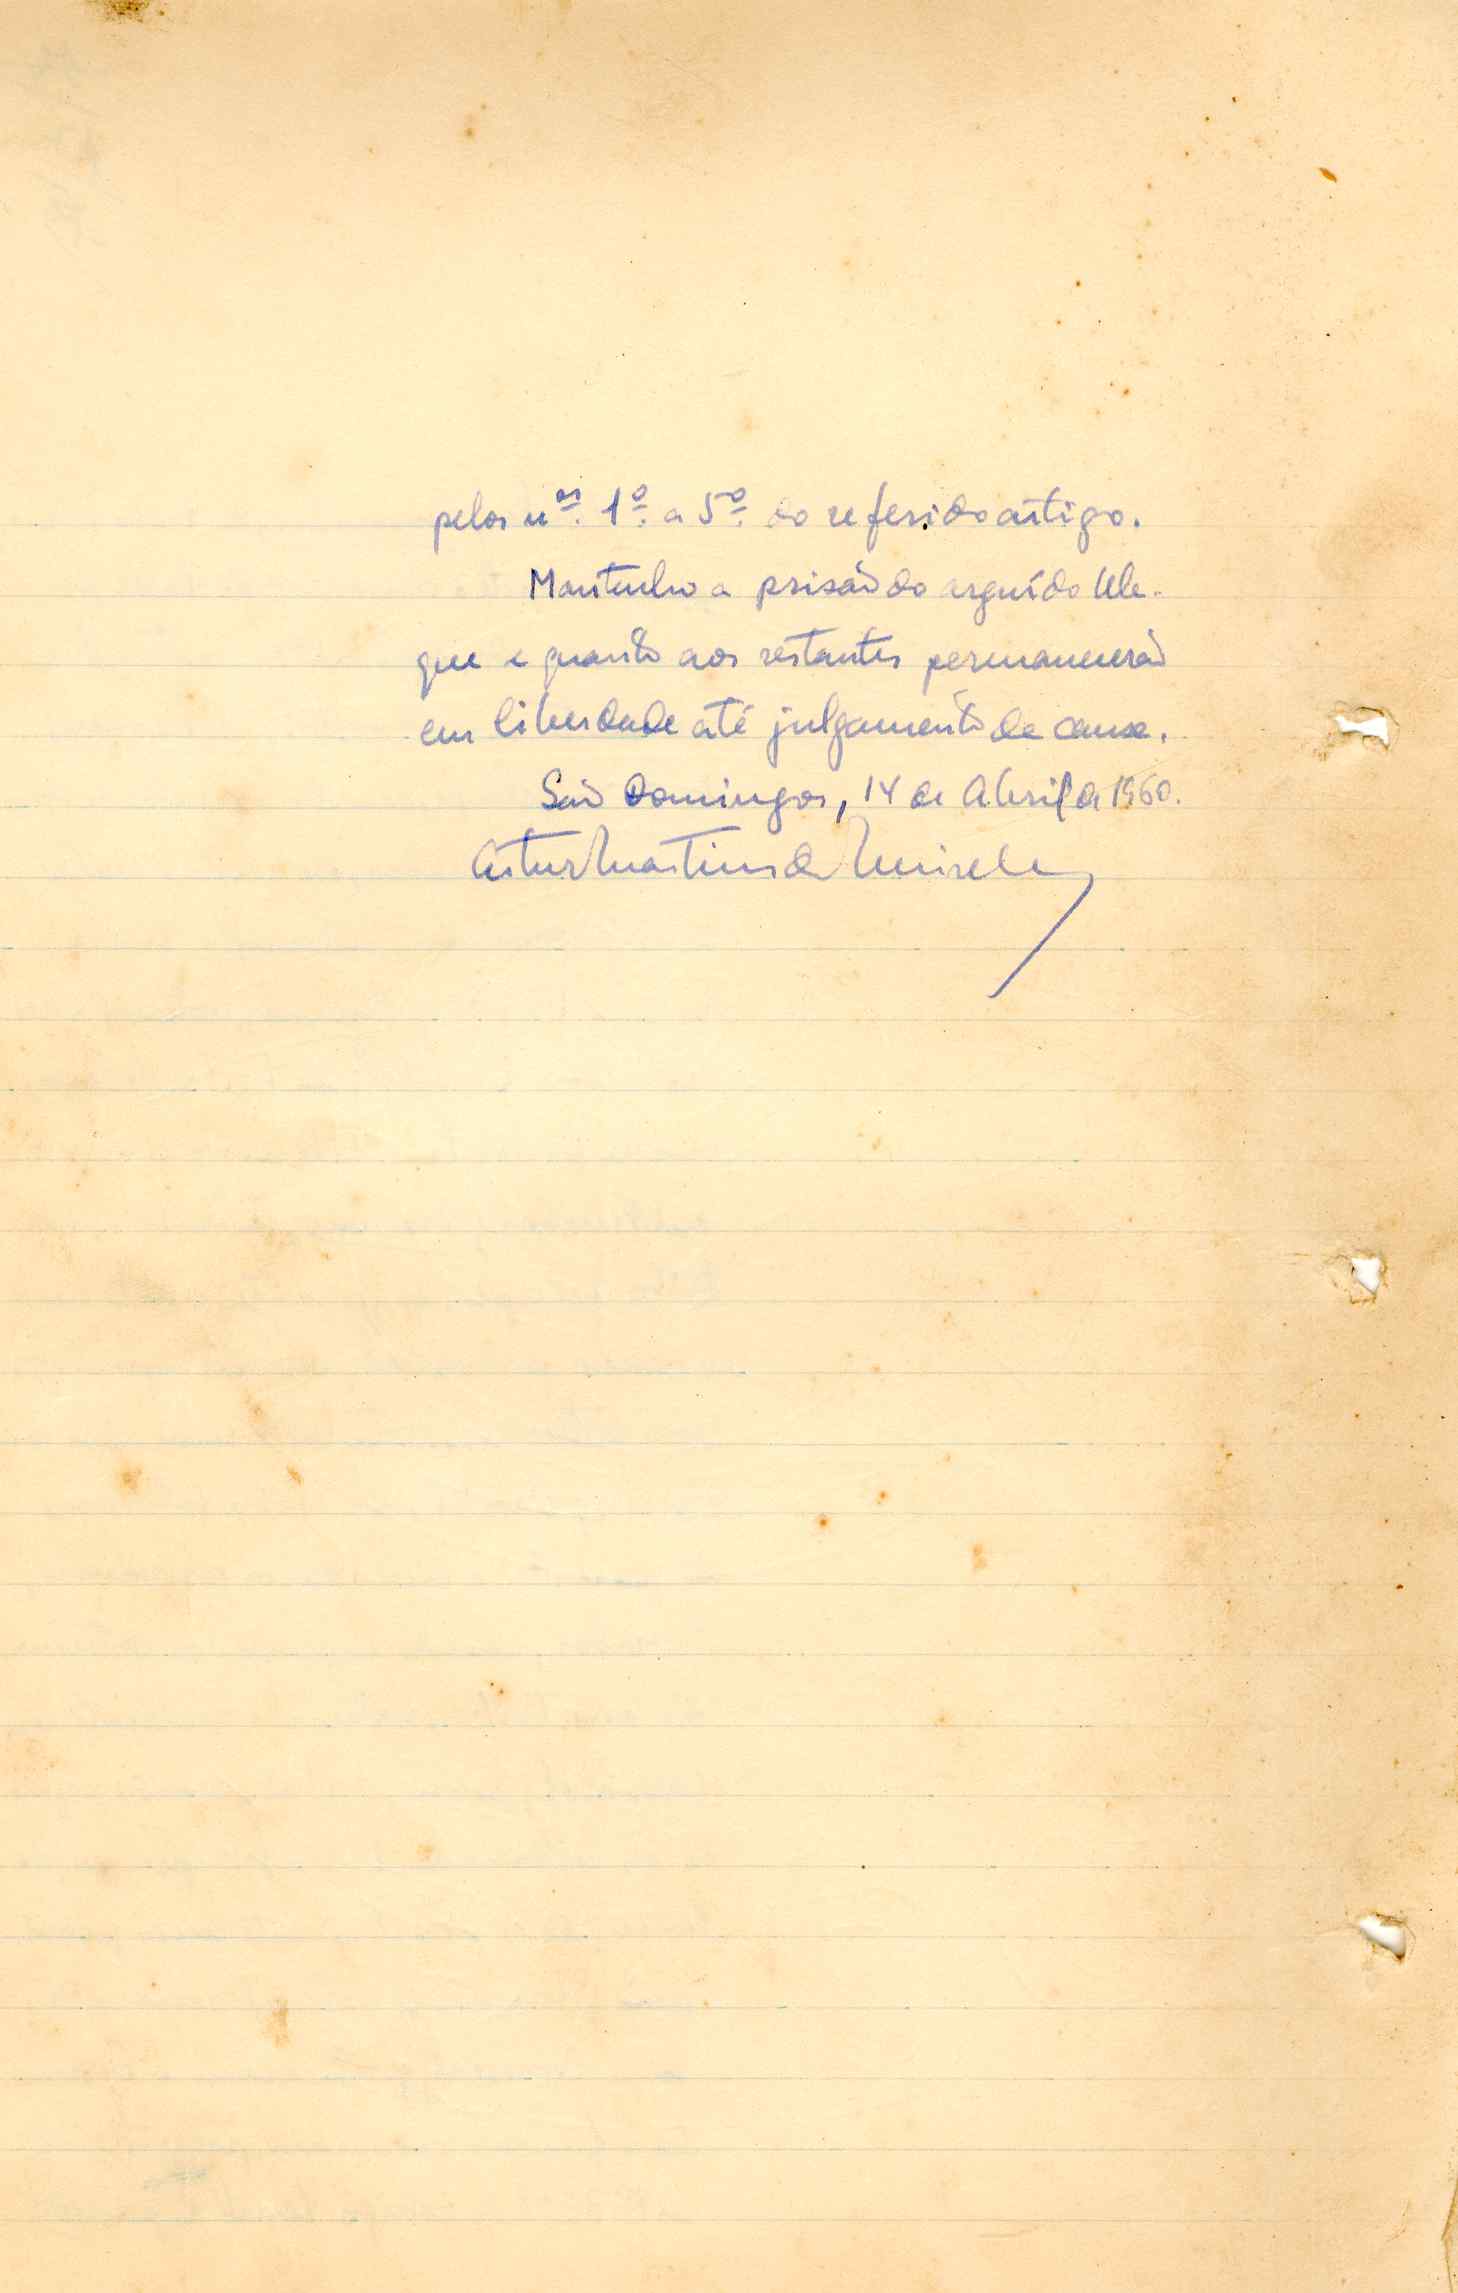 pelos nos. 1º. a 5º. do referido artigo.
Mantenho a prisão do arguído Ule-
gue e quanto aos restantes permanecerão
em liberdade até julgamento da causa.
São Domingos, 14 de Abril de 1960.
Artur Martins de